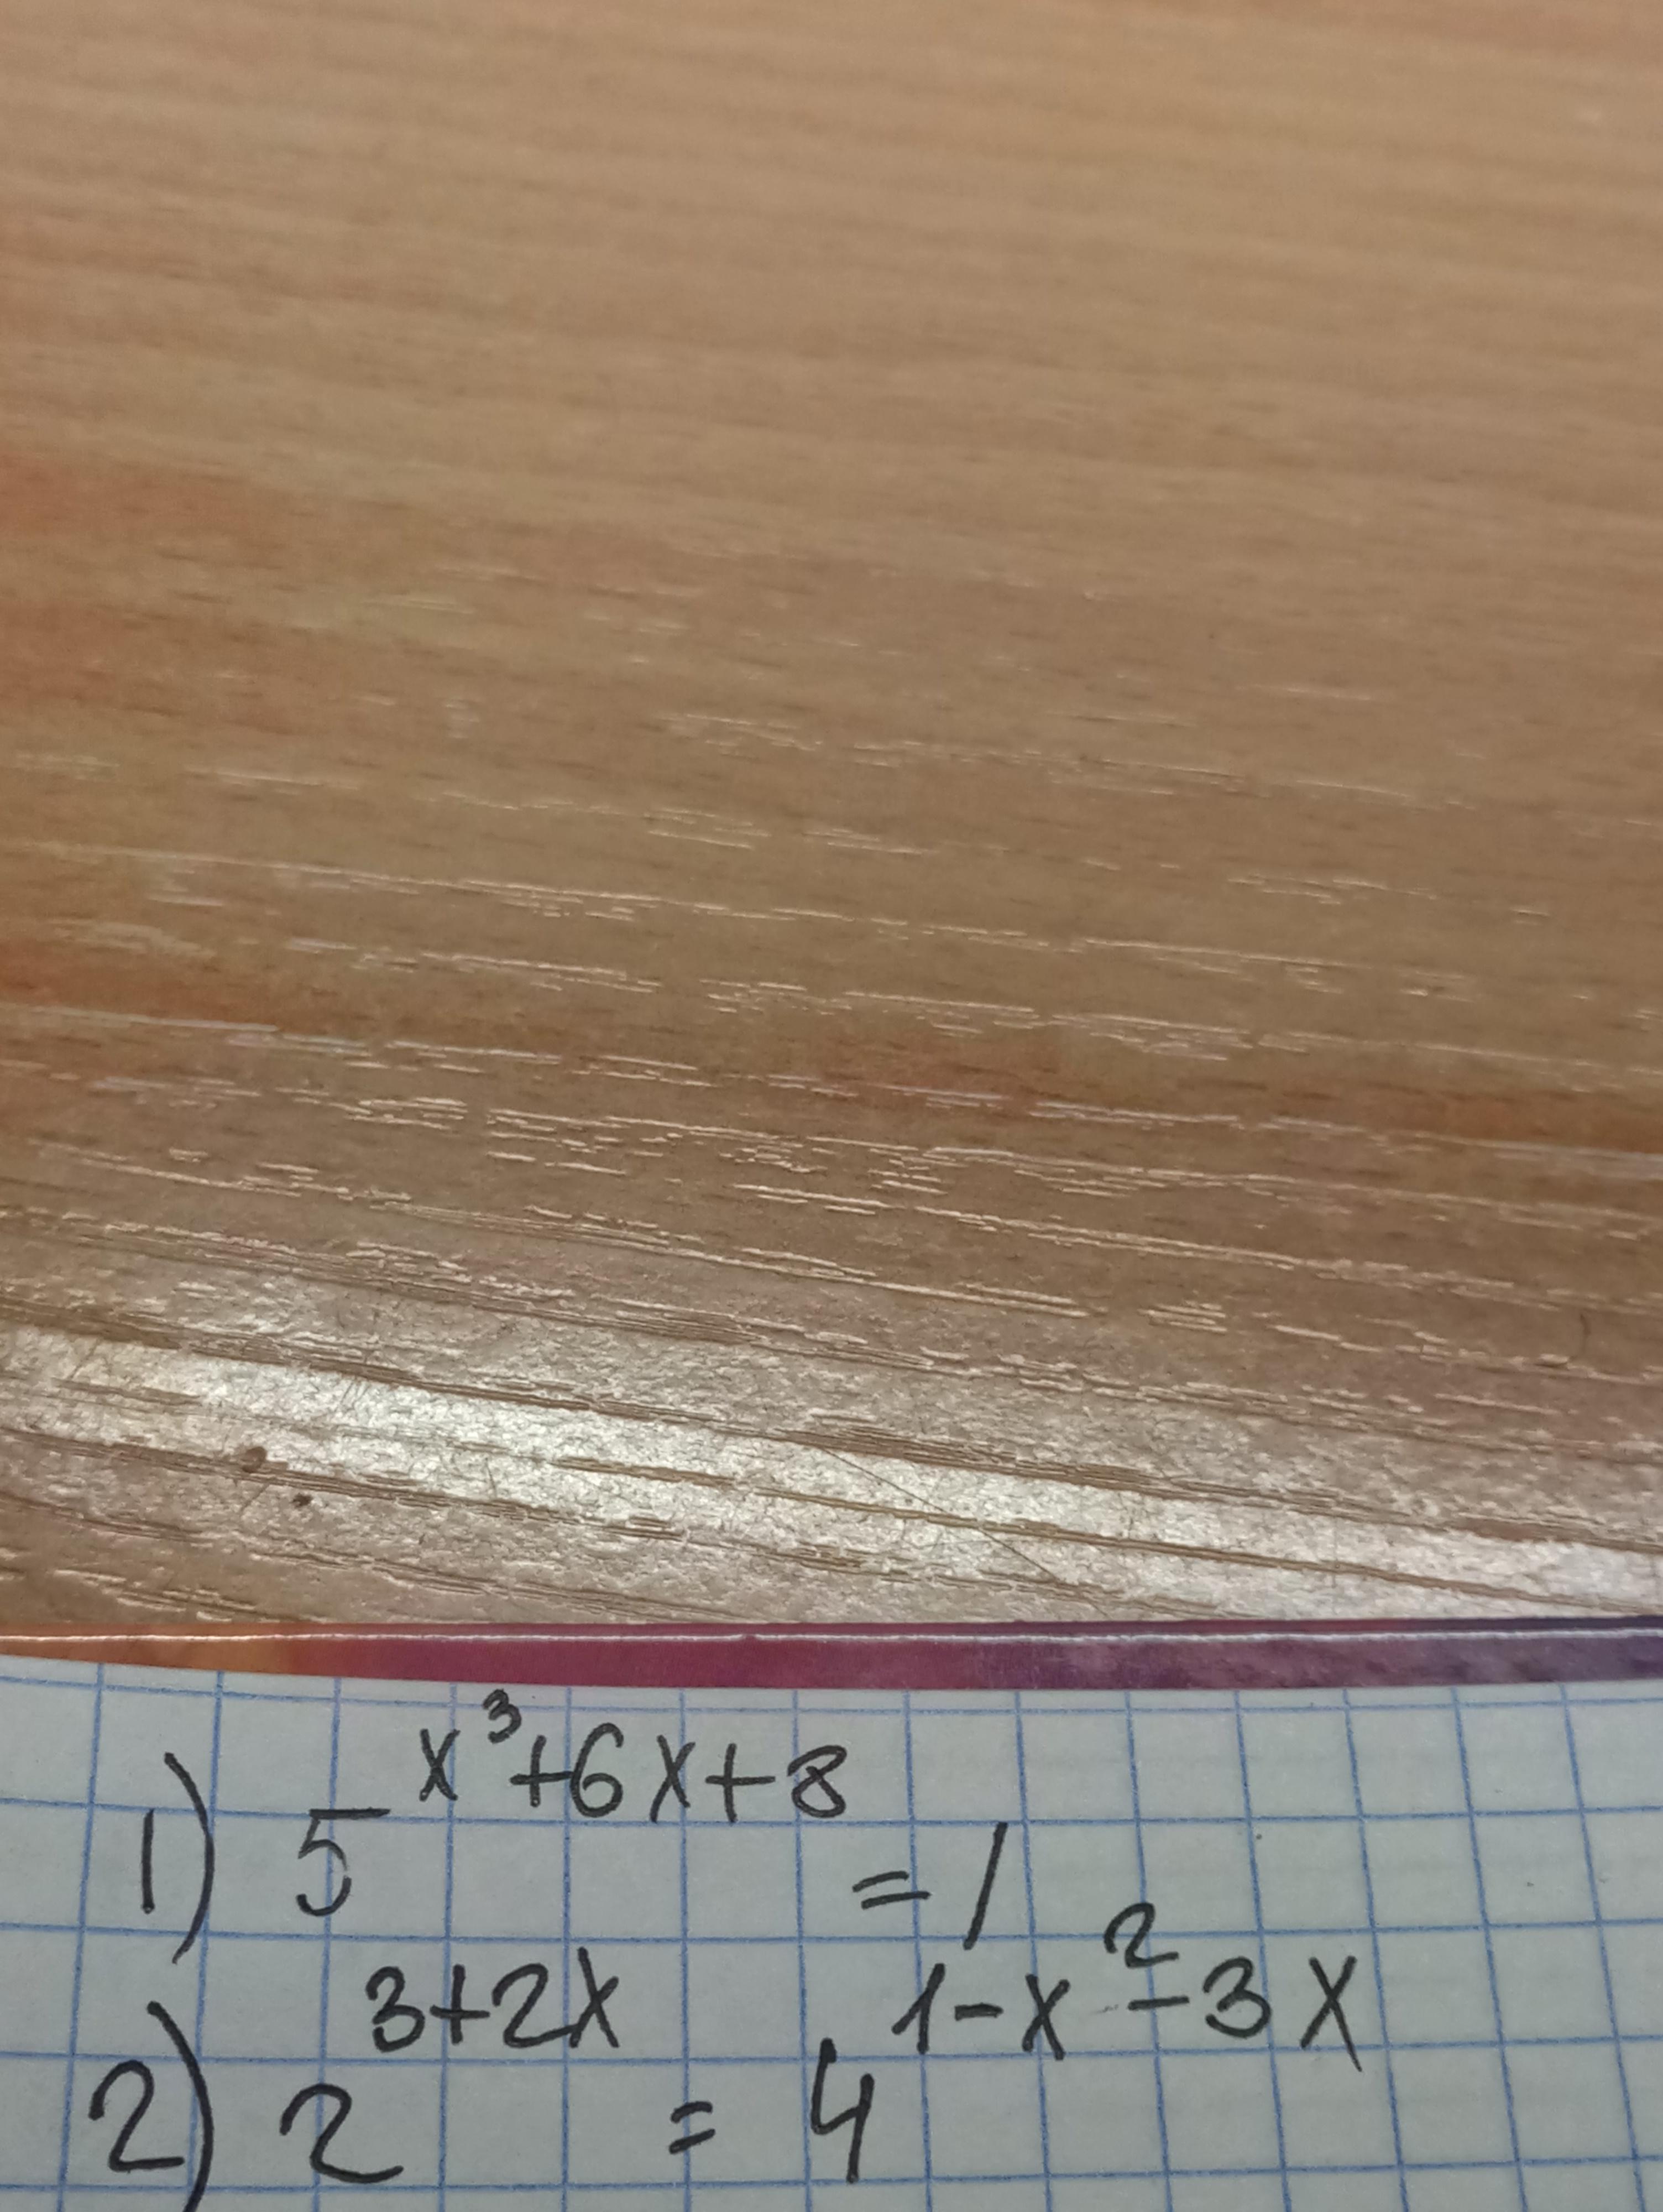 1) 5^{x^3+6x+8} = 1
2) 2^{3+2x} = 4^{1-x^2-3x}